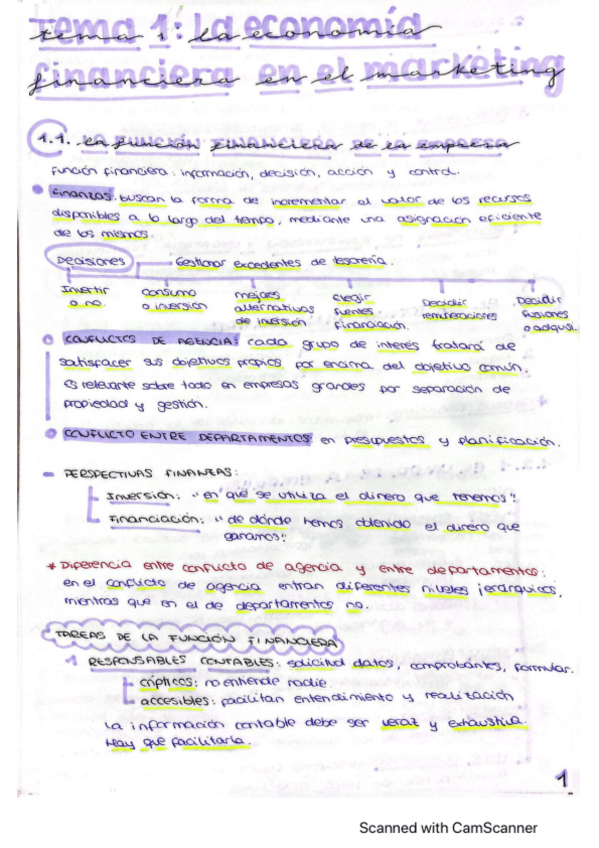 Tema 1: La economía
financiera en el marketing
1.1. La función financiera de la empresa
Función financiera: información, decisión, acción y control.
Finanzas: buscan la forma de incrementar el valor de los recursos
disponibles a lo largo del tiempo, mediante una asignación eficiente
de los mismos.
Decisiones
Gestionar excedentes de tesorería.
Invertir o no.
Consumo o inversión
mejores alternativas de inversión
elegir fuentes financiación.
Decidir remuneraciones
Decidir fusiones o adqui.
CONFLICTOS DE AGENCIA: cada grupo de interés tratará de
satisfacer sus objetivos propios por encima del objetivo común.
Es relevante sobre todo en empresas grandes por separación de
propiedad y gestión.
CONFLICTO ENTRE DEPARTAMENTOS en presupuestos y planificación.
PERSPECTIVAS FINANZAS:
Inversión: "en qué se utiliza el dinero que tenemos".
Financiación: "de dónde hemos obtenido el dinero que
ganamos".
* Diferencia entre conflicto de agencia y entre departamentos:
en el conflicto de agencia entran diferentes niveles jerárquicos,
mientras que en el de departamentos no.
TAREAS DE LA FUNCIÓN FINANCIERA
1 RESPONSABLES CONTABLES: solicitud datos, comprobantes, formular.
crípticos: no entiende nadie.
accesibles: facilitan entendimiento y realización
La información contable debe ser veraz y exhaustiva.
Hay que facilitarla.
1
Scanned with CamScanner